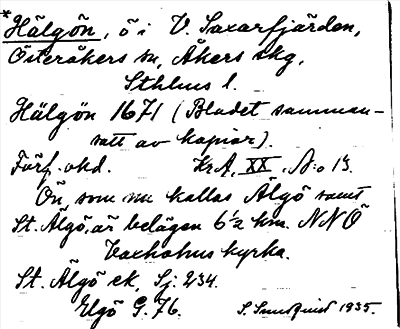 *Hälgön, ö i V. Saxarfjärden,
Österåkers sn, Åkers skg,
Sthlms l.
Hälgön 1671 (Bladet samman-
satt av kopior).
Förf. okd. KrA, XX, N:o 13.
Ön, som nu kallas Älgö samt
St. Älgö, är belägen 6½ km. NNÖ
Vaxholms kyrka.
St. Älgö ek, Sj: 234.
Elgö G. 76. S. Sundqvist 1935.